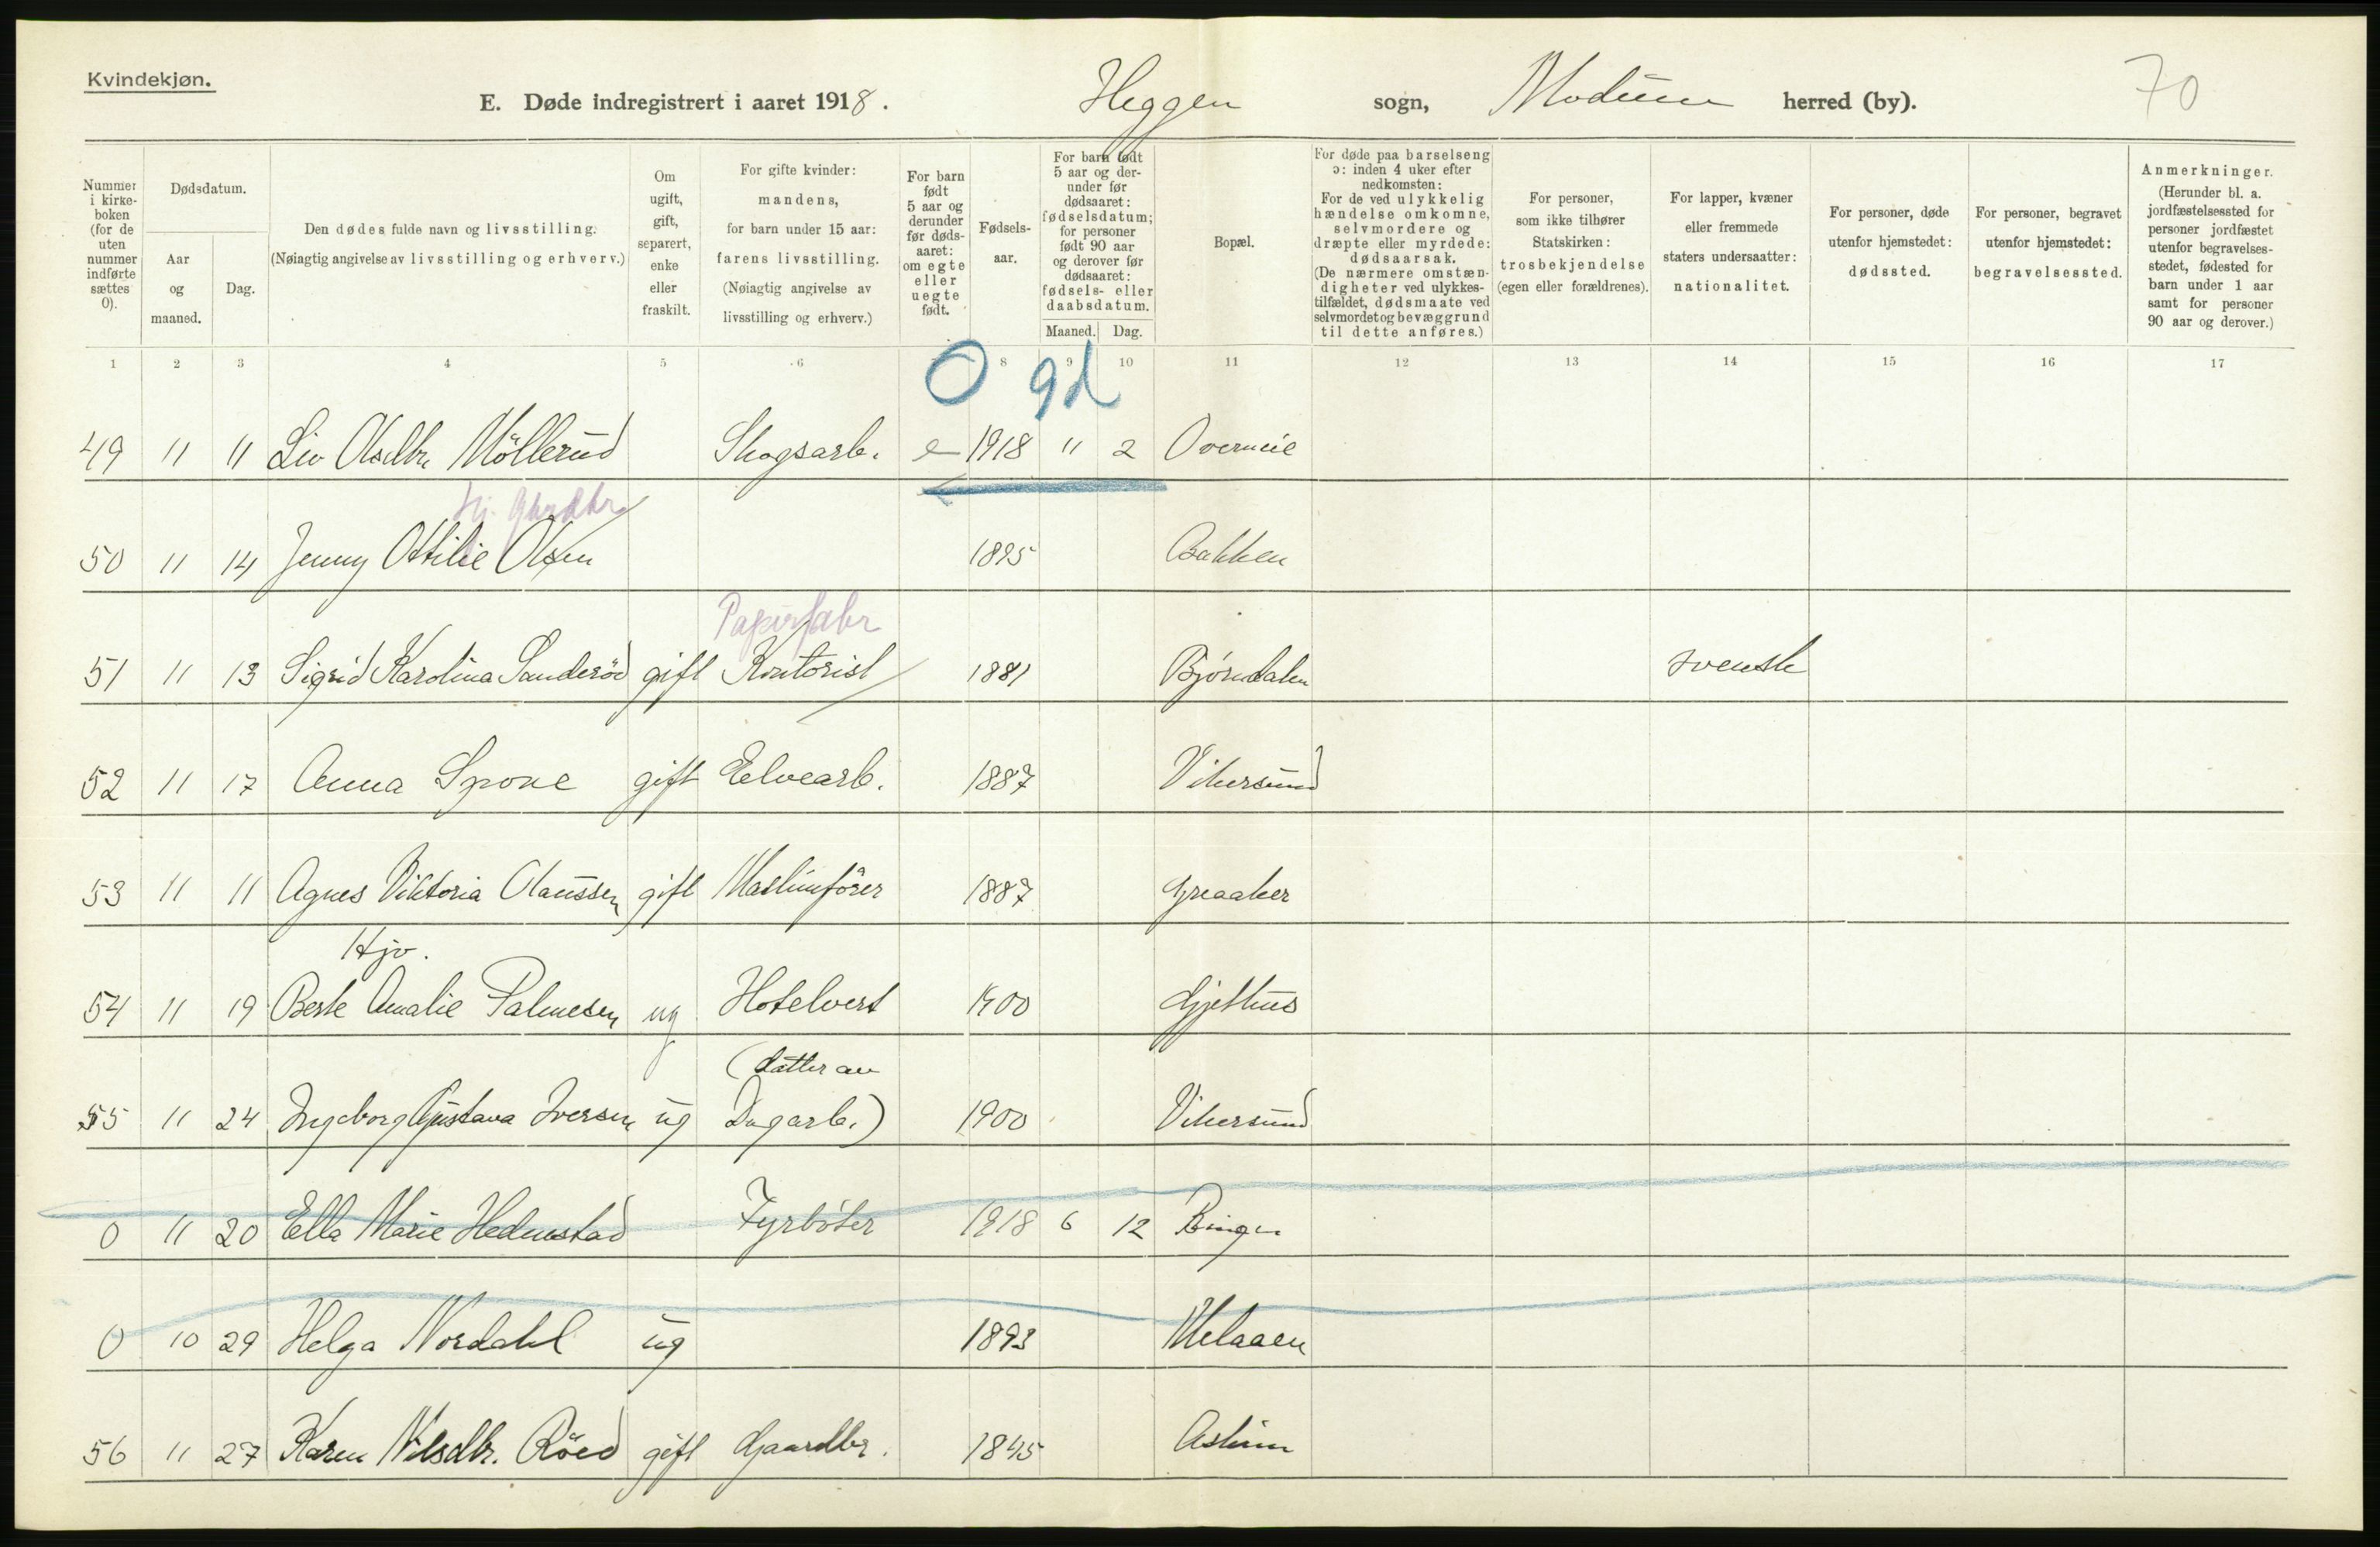 Kvindekjøn.
E. Døde indregistrert i aaret 1918. Heggen sogn, Modum herred (by). 70
Nummer i kirkeboken (for de uten nummer indførte sættes 0).
Dødsdatum.
Aar og maaned.
Dag.
Den dødes fulde navn og livsstilling.
(Nøiagtig angivelse av livsstilling og erhverv.)
Om ugift, gift, separert, enke eller fraskilt.
For gifte kvinder: mandens, for barn under 15 aar: farens livsstilling. (Nøiagtig angivelse av livsstilling og erhverv.)
For barn født 5 aar og derunder før dødsaaret: om egte eller uegte født.
Fødselsaar.
For barn født 5 aar og derunder før dødsaaret: fødselsdatum; for personer født 90 aar og derover før dødsaaret: fødsels- eller daabsdatum.
Maaned. Dag.
Bopæl.
For døde paa barselseng ɔ: inden 4 uker efter nedkomsten: For de ved ulykkelig hændelse omkomne, selvmordere og dræpte eller myrdede: dødsaarsak. (De nærmere omstændigheter ved ulykkestilfældet, dødsmaate ved selvmordet og bevæggrund til dette anføres.)
For personer, som ikke tilhører Statskirken: trosbekjendelse (egen eller forældrenes).
For lapper, kvæner eller fremmede staters undersaatter: nationalitet.
For personer, døde utenfor hjemstedet: dødssted.
For personer, begravet utenfor hjemstedet: begravelsessted.
Anmerkninger. (Herunder bl. a. jordfæstelsessted for personer jordfæstet utenfor begravelsesstedet, fødested for barn under 1 aar samt for personer 90 aar og derover.)
1 2 3 4 5 6 8 9 10 11 12 13 14 15 16 17
0 9d
49 11 11 Liv Olsdtr. Möllerud Skogsarb. e 1918 11 2 Overneie
Hj. Gbrdtr
50 11 14 Jenny Ottilie Olsen 1895 Bakken
Papirfabr
51 11 13 Sigrid Karolina Sanderöd gift Kontorist 1881 Bjørndalen svensk
52 11 17 Anna Spone gift Elvearb. 1887 Vikersund
53 11 11 Agnes Viktoria Olaussen gift Maskinförer 1887 Greaaker
Hjv.
54 11 19 Berte Amalie Palmesen ug Hotelvert 1900 Gjethus
(datter av
55 11 24 Ingeborg Gustava Iversen ug Dagarb.) 1900 Vikersund
0 11 20 Ella Marie Hedenstad Fyrböter 1918 6 12 Bingen
0 10 29 Helga Nordahl ug 1893 Melaaen
56 11 27 Karen Nilsdtr. Röed gift Gaardbr. 1845 Askim